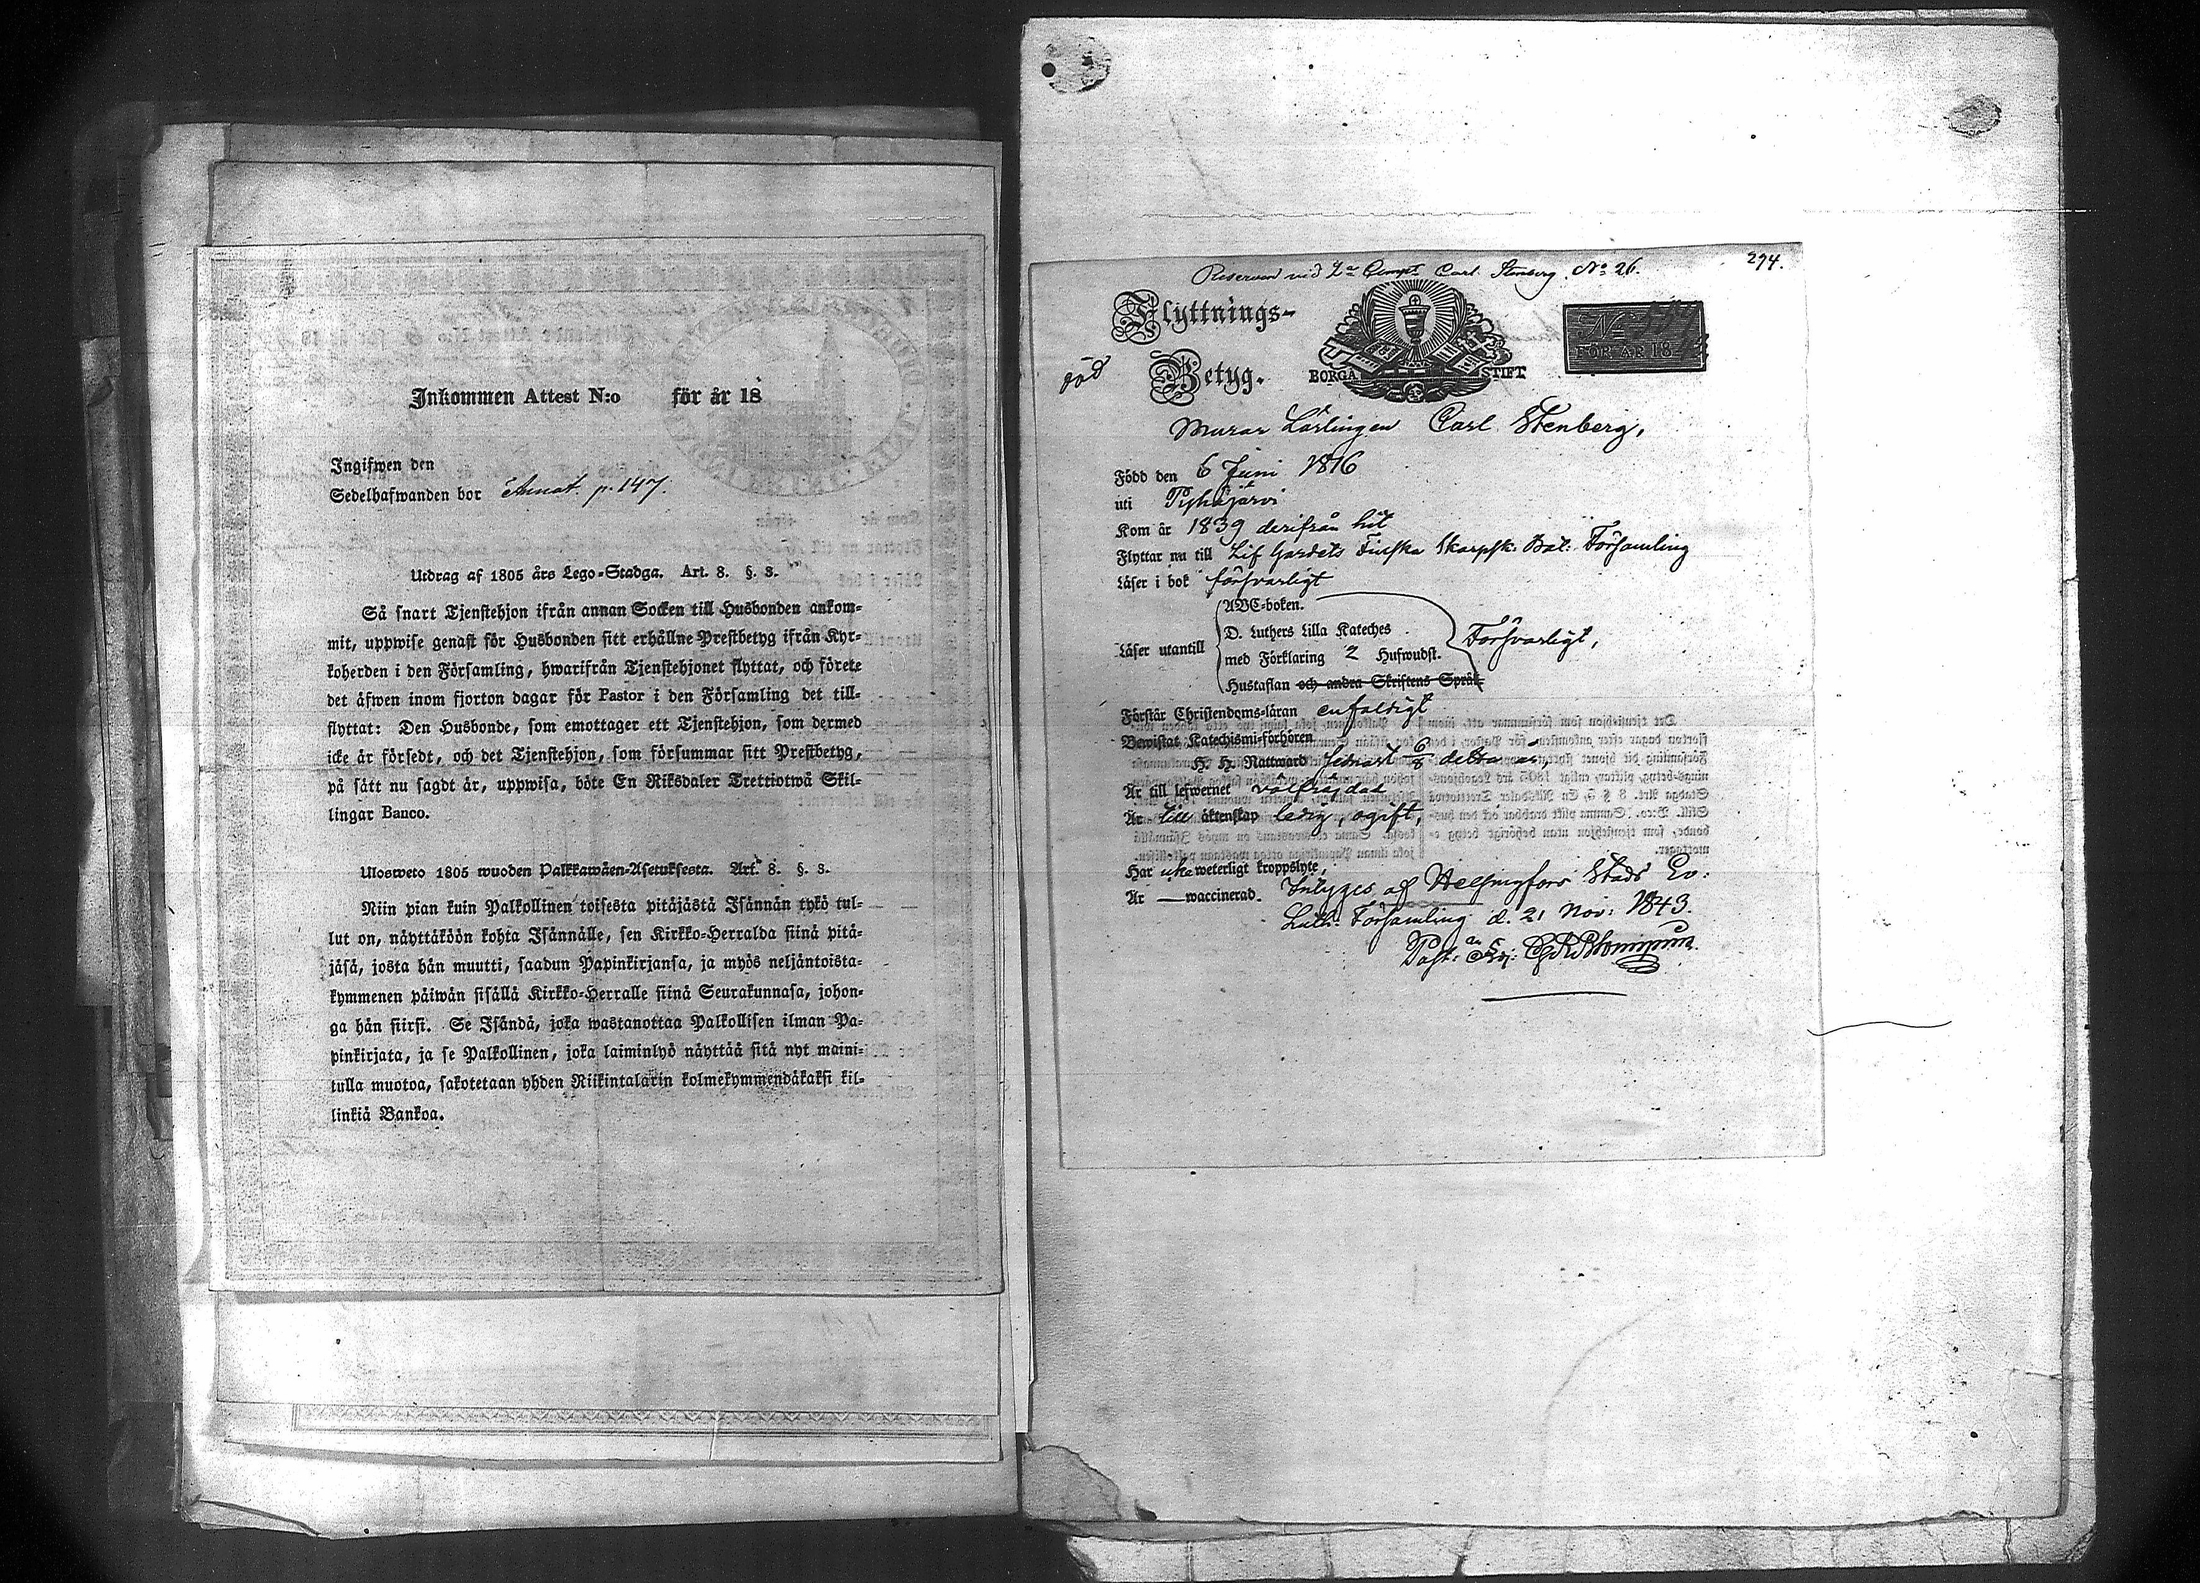 Inkommen Attest N:o för år 18
Ingifwen den
Sedelhafwanden bor Annot. p. 147.
Utdrag af 1805 års Lego-Stadga. Art. 8. §. 3.
Så snart Tjenstehjon ifrån annan Socken till Husbonden ankom-
mit, uppwise genast för Husbonden sitt erhållne Prestbetyg ifrån Kyr-
koherden i den Församling, hwarifrån Tjenstehjonet flyttat, och förete
det äfwen inom fjorton dagar för Pastor i den Församling det till-
flyttat: Den Husbonde, som emottager ett Tjenstehjon, som dermed
icke är försedt, och det Tjenstehjon, som försummar sitt Prestbetyg,
på sätt nu sagdt är, uppwisa, böte En Riksdaler Trettiotwå Skil-
lingar Banco.
Ulosweto 1805 wuoden Palkkawäen-Asetuksesta. Art. 8. §. 3.
Niin pian kuin Palkollinen toisesta pitäjästä Isännän tykö tul-
lut on, näyttäköön kohta Isännälle, sen Kirkko-Herralda siinä pitä-
jäsä, josta hän muutti, saadun Papinkirjansa, ja myös neljäntoista-
kymmenen päiwän sisällä Kirkko-Herralle siinä Seurakunnasa, johon-
ga hän siirsi. Se Isändä, joka wastanottaa Palkollisen ilman Pa-
pinkirjata, ja se Palkollinen, joka laiminlyö näyttää sitä nyt maini-
tulla muotoa, sakotetaan yhden Riikintalarin kolmekymmendäkaksi kil-
linkiä Bankoa.
Reserven vid 2:a Compt Carl Stenberg. No 26. 294.
Flyttnings-
Betyg.
död
BORGÅ STIFT
No
FÖR ÅR 18
Murar Lärlingen Carl Stenberg,
Född den 6 Juni 1816
uti Pyhäjärvi
Kom år 1839 derifrån hit
Flyttar nu till Lif Gardets Finska Skarpsk. Bat: Församling
Läser i bok försvarligt
ABC-boken.
D. Luthers Lilla Kateches
Läser utantill med Förklaring 2 Hufwudst. Försvarligt,
Hustaflan och andra Skriftens Språk
Förstår Christendoms-läran enfaldigt
Bewistat Katechismi-förhören
H. H. Nattward senast 6/8 detta år
Är till lefwernet välfräjdad
Är till äktenskap ledig, ogift,
Har icke weterligt kroppslyte,
Är — waccinerad. Intygas af Helsingfors Stads Ev:
Luth. Församling d. 21 Nov: 1843.